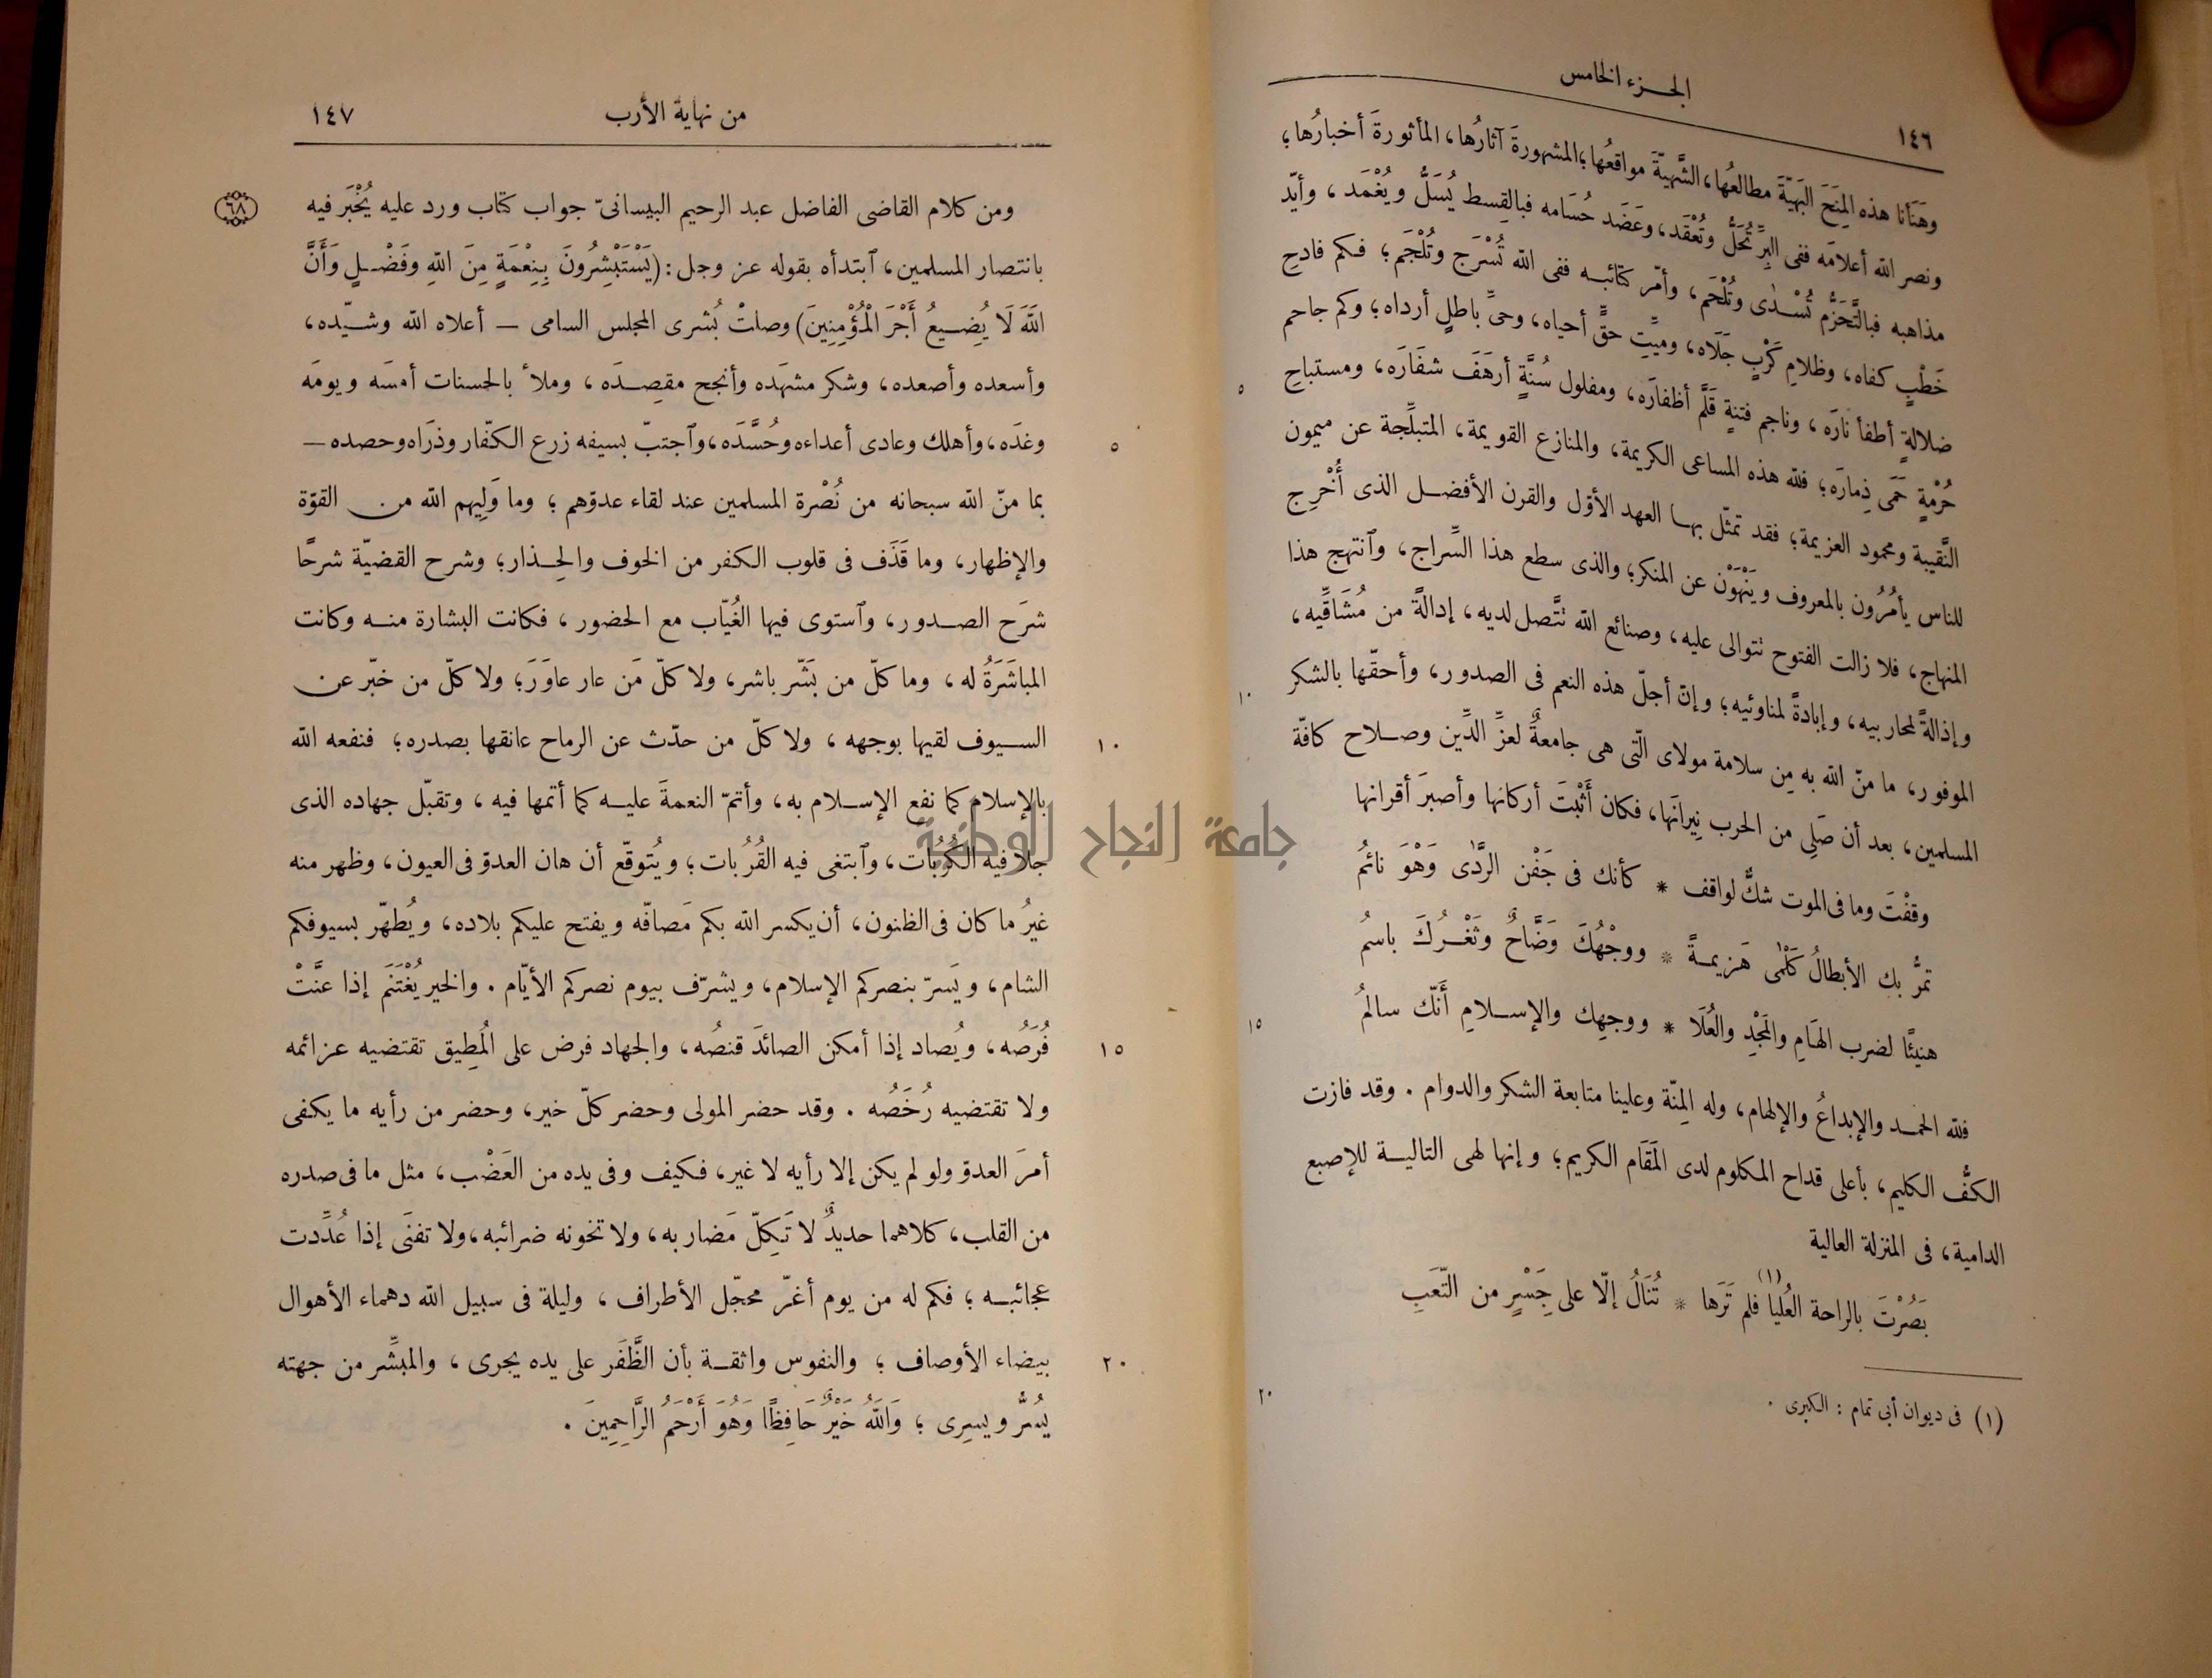 الجزء الخامس
١٤٦
وهَنَأَنا هذه المِنَحَ البَهيّةَ مطالعُها، الشَّهيّةَ مواقعُها؛ المشهورةَ آثارُها، المأثورةَ أخبارُها؛
ونصر الله أعلامَه ففى البِرِّ تُحَلُّ وتُعْقَد، وعَضَد حُسَامه فبالقِسط يُسَلُّ ويُغْمَد، وأيّد
مذاهبه فبالتَّحَزُّم تُسْدَى وتُلْحَم، وأمّر كتائبه ففى الله تُسْرَج وتُلْجَم؛ فكم فادحِ
خَطْبٍ كفاه، وظلامِ كَرْبٍ جَلَاه، وميِّتِ حقٍّ أحياه، وحىِّ باطلٍ أرداه؛ وكم جاحم
ضلالةٍ أطفأ نارَه، وناجم فتنةٍ قَلَّم أظفارَه، ومفلول سُنَّةٍ أرهَفَ شفَارَه، ومستباحِ
٥
حُرْمةٍ حَمَى ذِمارَه؛ فلله هذه المساعى الكريمة، والمنازع القويمة، المتبلِّجة عن ميمون
النَّقيبة ومحمود العزيمة؛ فقد تمثّل بها العهد الأوّل والقرن الأفضل الذى أُخْرِج
للناس يأمُرُون بالمعروف ويَنْهَوْن عن المنكر؛ والذى سطع هذا السِّراج، وٱنتهج هذا
المنهاج، فلا زالت الفتوح تتوالى عليه، وصنائع الله تتّصل لديه، إدالةً من مُشَاقِّيه،
وإذالةً لمحاربيه، وإبادةً لمناوئيه؛ وإنّ أجلّ هذه النعم فى الصدور، وأحقّها بالشكر
١٠
الموفور، ما منّ الله به مِن سلامة مولاى الّتى هى جامعةٌ لعزِّ الدِّين وصلاح كافّة
المسلمين، بعد أن صَلِى من الحرب نِيرانَها، فكان أَثْبَتَ أركانها وأصبرَ أقرانها
وقفْتَ وما فى الموت شكٌّ لواقف * كأنك فى جَفْن الرَّدَى وَهْوَ نائمُ
تمرُّ بك الأبطالُ كَلْمَى هَزيمةً * ووجْهُكَ وَضَّاحٌ وثَغْرُكَ باسمُ
هنيئًا لضرب الهَامِ والمَجْدِ والعُلَا * ووجهِك والإسلامِ أَنّك سالمُ
١٥
فلله الحمد والإبداعُ والإلهام، وله المِنّة وعلينا متابعة الشكر والدوام. وقد فازت
الكفُّ الكليم، بأعلى قداح المكلوم لدى المَقَام الكريم؛ وإنها لهى التالية للإصبع
الدامية، فى المنزلة العالية
بَصُرْتَ بالراحة العُليا (١) فلم تَرَها * تُنَالُ إلّا على جِسْرٍ من التّعَبِ
٢٠
(١) فى ديوان أبى تمام : الكبرى .
من نهاية الأرب
١٤٧
ومن كلام القاضى الفاضل عبد الرحيم البيسانىّ جواب كتاب ورد عليه يُخْبَر فيه
٦٨
بانتصار المسلمين، ٱبتدأه بقوله عز وجل: (يَسْتَبْشِرُونَ بِنِعْمَةٍ مِنَ اللهِ وَفَضْلٍ وَأَنَّ
اللهَ لَا يُضِيعُ أَجْرَ الْمُؤْمِنِينَ) وصلتْ بُشرى المجلس السامى — أعلاه الله وشيّده،
وأسعده وأصعده، وشكر مشهَده وأنجح مقصِدَه، وملأ بالحسنات أمسَه ويومَه
وغدَه، وأهلك وعادى أعداءه وحُسَّدَه، وٱجتبّ بسيفه زرع الكفّار وذرَاه وحصده —
٥
بما منّ الله سبحانه من نُصْرة المسلمين عند لقاء عدوّهم؛ وما وَلِيهم الله من القوّة
والإظهار، وما قَذَف فى قلوب الكفر من الخوف والحِذار؛ وشرح القضيّة شرحًا
شرَح الصدور، وٱستوى فيها الغُيّاب مع الحضور، فكانت البشارة منه وكانت
المباشَرَةُ له، وما كلّ من بَشّر باشر، ولا كلّ مَن عار عاوَرَ؛ ولا كلّ من خبّر عن
السيوف لقيها بوجهه، ولا كلّ من حدّث عن الرماح عانقها بصدره؛ فنفعه الله
١٠
بالإسلام كما نفع الإسلام به، وأتمّ النعمةَ عليه كما أتمها فيه، وتقبّل جهاده الذى
جلا فيه الكُرُبات، وٱبتغى فيه القُرُبات؛ ويُتوقّع أن هان العدوّ فى العيون، وظهر منه
غيرُ ما كان فى الظنون، أن يكسر الله بكم مَصافّه ويفتح عليكم بلاده، ويُطهّر بسيوفكم
الشام، ويَسرّ بنصركم الإسلام، ويشرّف بيوم نصركم الأيّام. والخير يُغْتَنَم إذا عنَّتْ
فُرَصُه، ويُصاد إذا أمكن الصائدَ قنصُه، والجهاد فرض على المُطِيق تقتضيه عزائمه
١٥
ولا تقتضيه رُخَصُه. وقد حضر المولى وحضر كلّ خير، وحضر من رأيه ما يكفى
أمرَ العدوّ ولو لم يكن إلا رأيه لا غير، فكيف وفى يده من العَضْب، مثل ما فى صدره
من القلب، كلاهما حديدٌ لا تَكِلّ مَضاربه، ولا تخونه ضرائبه، ولا تفنَى إذا عُدِّدت
عجائبه؛ فكم له من يوم أغرّ محجّل الأطراف، وليلة فى سبيل الله دهماء الأهوال
بيضاء الأوصاف؛ والنفوس واثقة بأن الظَّفَر على يده يجرى، والمبشِّر من جهته
٢٠
يُسَرُّ ويسرِى؛ وَاللهُ خَيْرٌ حَافِظًا وَهُوَ أَرْحَمُ الرَّاحِمِينَ.
جامعة النجاح الوطنية